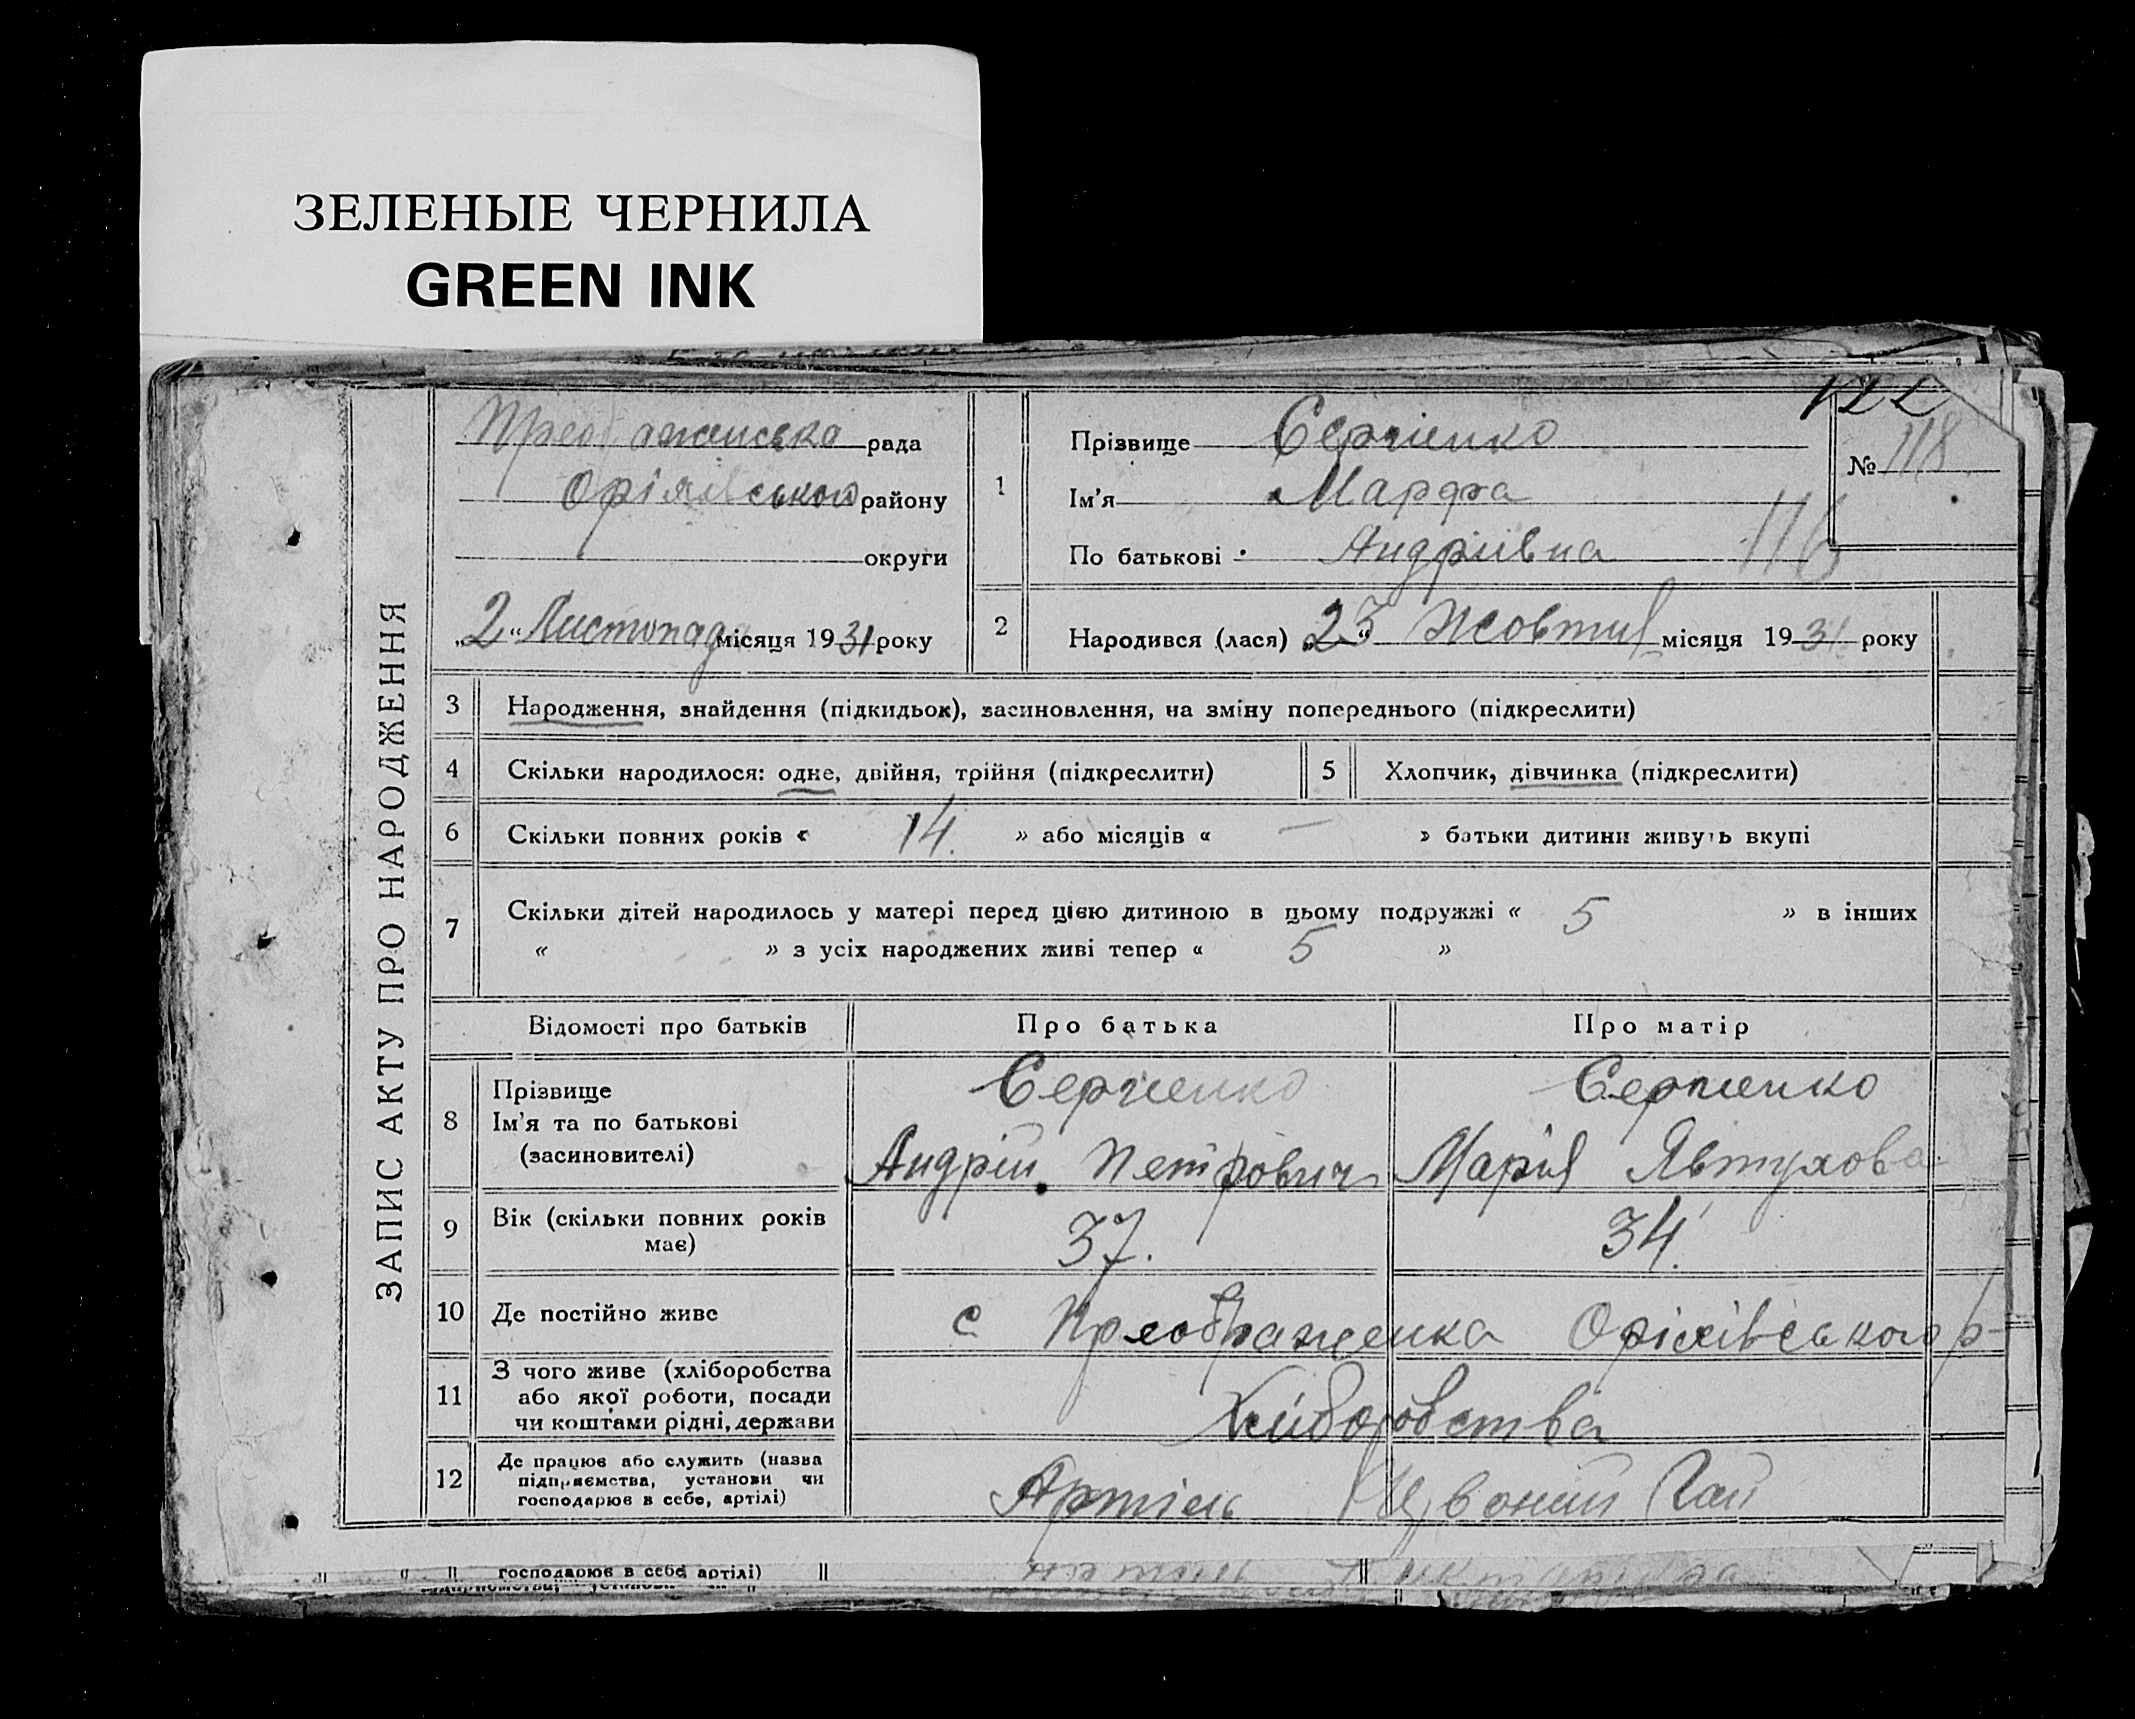 ЗЕЛЕНЫЕ ЧЕРНИЛА
GREEN INK
ЗАПИС АКТУ ПРО НАРОДЖЕННЯ
Преображенська рада
Оріхівського району
округи
„2“ Листопада місяця 1931 року
122
№ 118
116
1 Прізвище Сергієнко
Ім'я Марфа
По батькові Андріївна
2 Народився (лася) „23“ Жовтня місяця 1931 року
3 Народження, знайдення (підкидьок), засиновлення, на зміну попереднього (підкреслити)
4 Скільки народилося: одне, двійня, трійня (підкреслити) 5 Хлопчик, дівчинка (підкреслити)
6 Скільки повних років « 14. » або місяців « — » батьки дитини живуть вкупі
7 Скільки дітей народилось у матері перед цією дитиною в цьому подружжі « 5 » в інших
« » з усіх народжених живі тепер « 5 »
Відомості про батьків Про батька Про матір
8 Прізвище
Ім'я та по батькові
(засиновителі)
Сергієнко Сергієнко
Андрій Петрович Марія Явтухова
9 Вік (скільки повних років
має)
37. 34.
10 Де постійно живе с Преображенка Оріхівського р-
11 З чого живе (хліборобства
або якої роботи, посади
чи коштами рідні, держави
Хліборобства
12 Де працює або служить (назва
підприємства, установи чи
господарює в себе, артілі)
Артіль Червоний Гай
господарює в себе артілі)